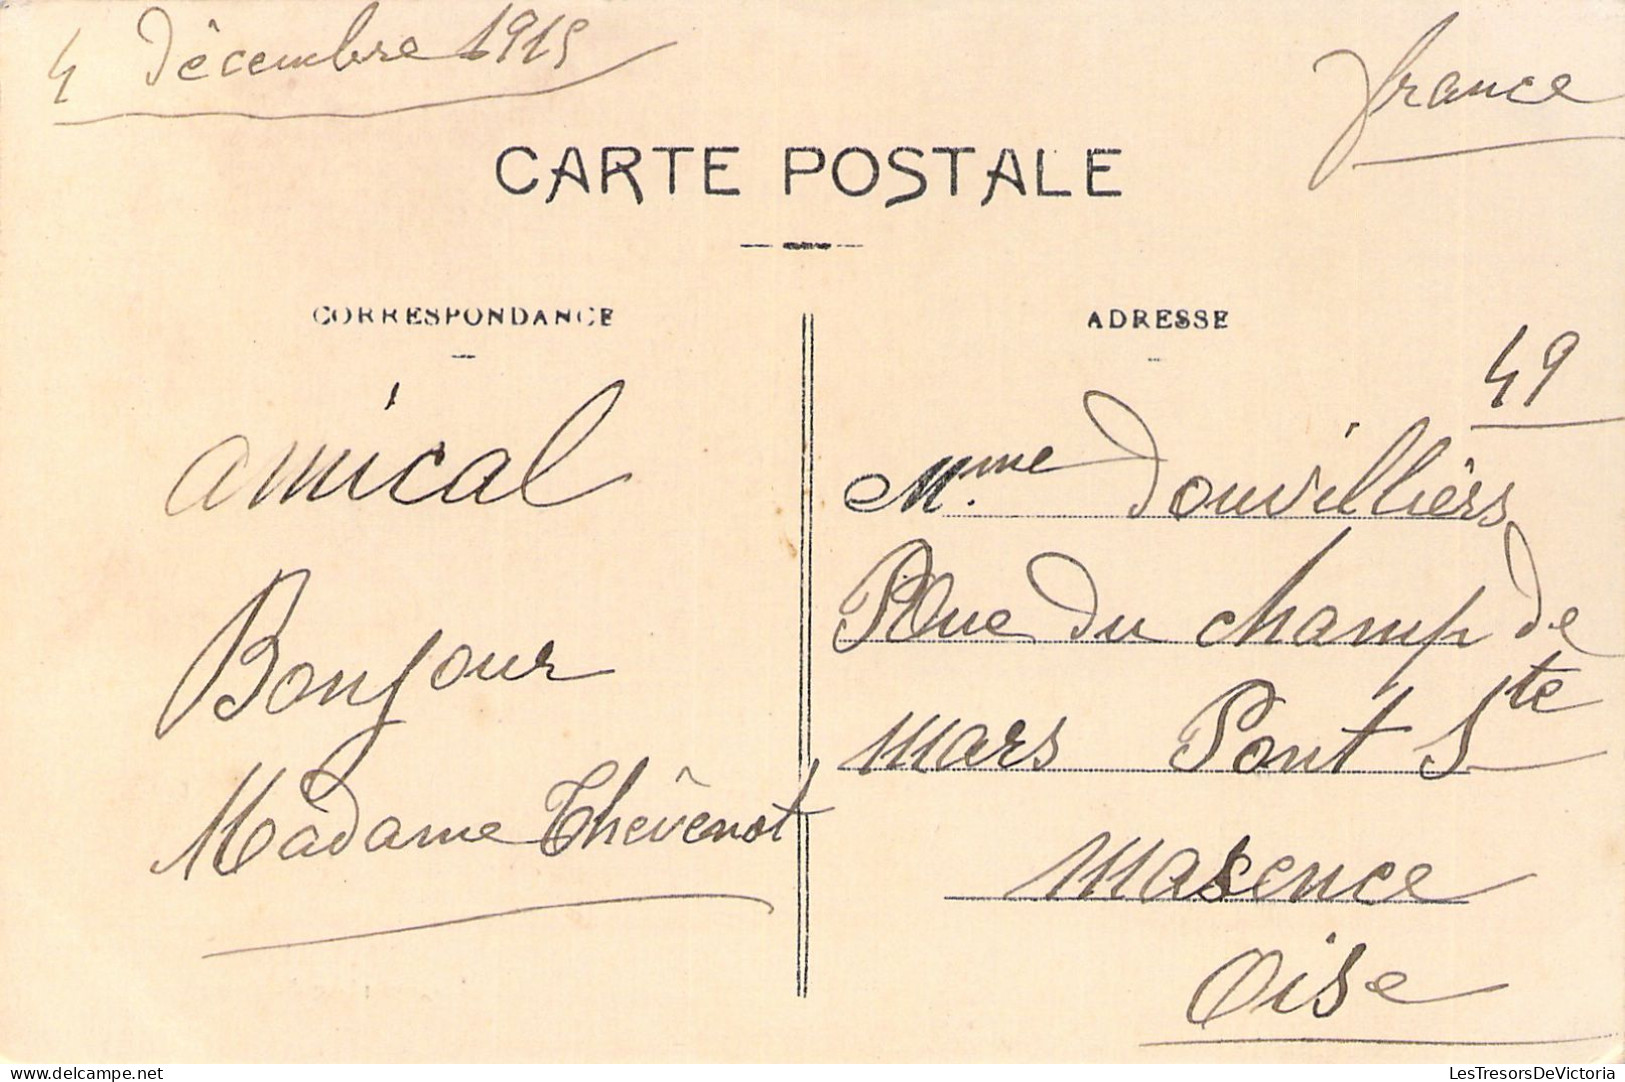 4 Décembre 1915
france
CARTE POSTALE
CORRESPONDANCE
ADRESSE
49
amical
Bonjour
Madame Thévenot
Mme Douvilliérs
Rue du champ de
mars Pont Ste
Maxence
Oise
LesTresorsDeVictoria.com